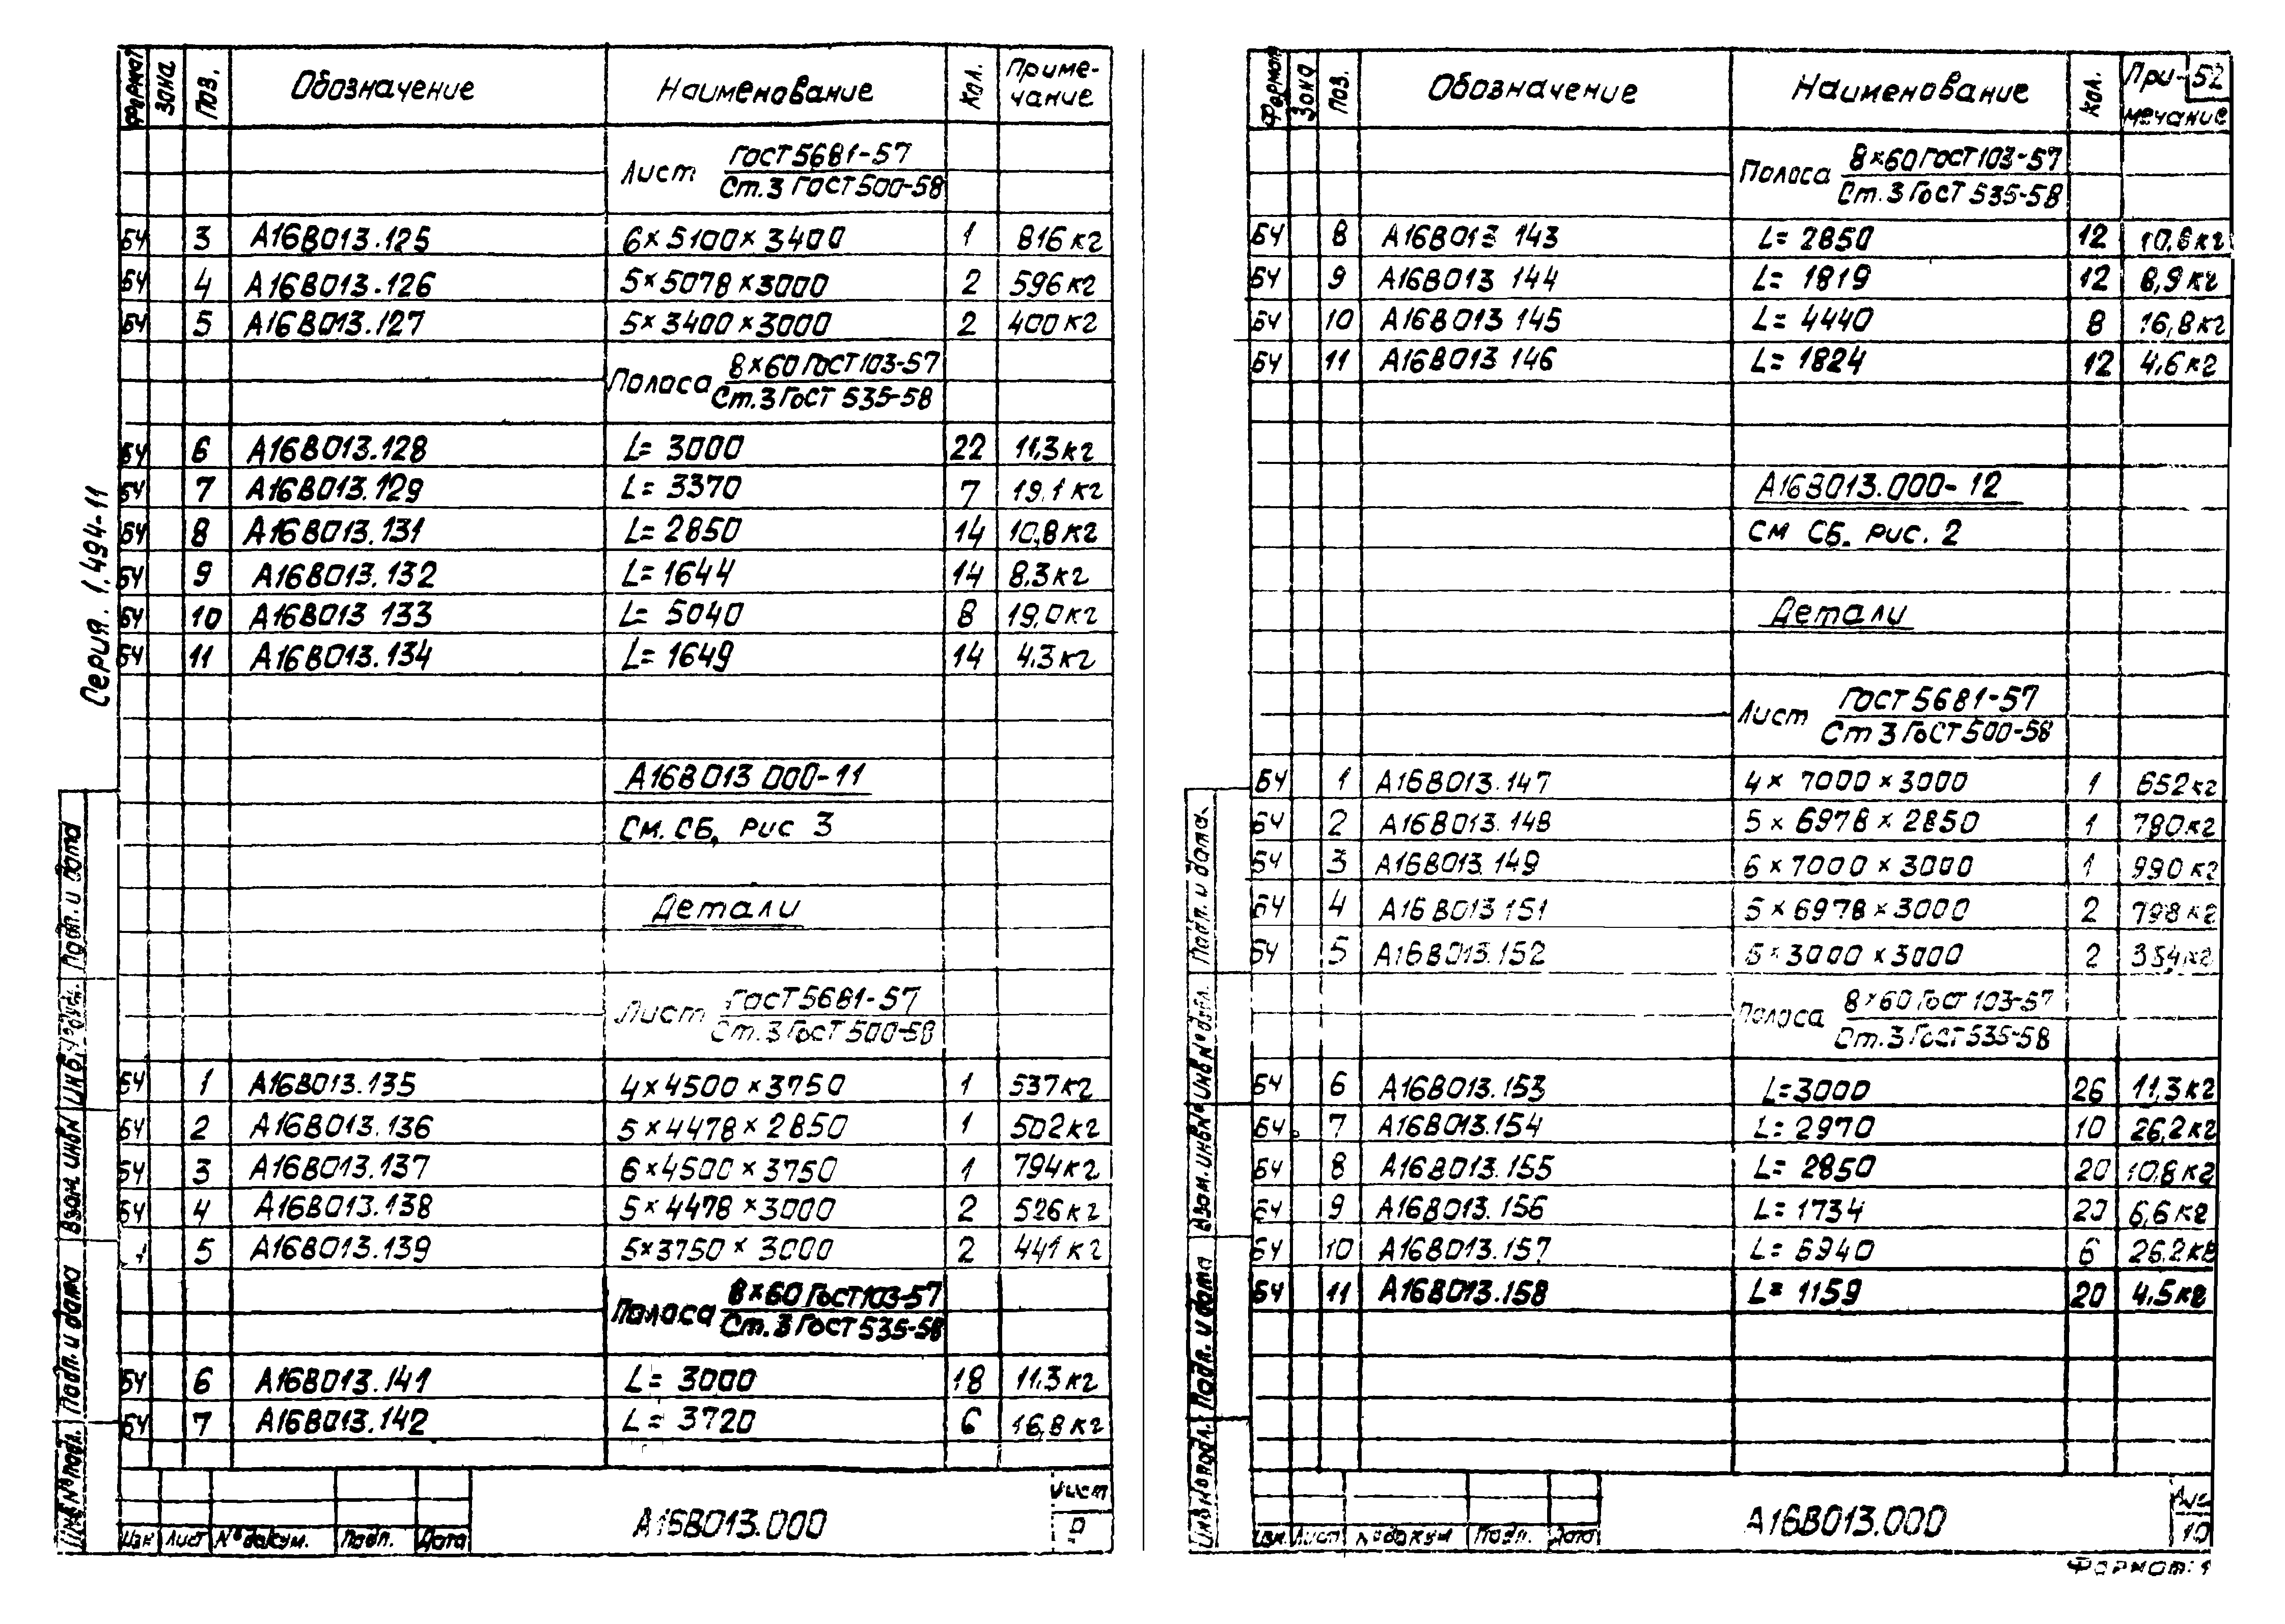 Серия. 1.494-11
Формат Зона Поз. Обозначение Наименование Кол. Приме-
чание
Лист ГОСТ 5681-57
Ст.3 ГОСТ 500-58
БЧ 3 А16В013.125 6×5100×3400 1 816кг
БЧ 4 А16В013.126 5×5078×3000 2 596кг
БЧ 5 А16В013.127 5×3400×3000 2 400кг
Полоса 8×60 ГОСТ 103-57
Ст.3 ГОСТ 535-58
БЧ 6 А16В013.128 L= 3000 22 11,3кг
БЧ 7 А16В013.129 L= 3370 7 19.1кг
БЧ 8 А16В013.131 L= 2850 14 10,8кг
БЧ 9 А16В013.132 L= 1644 14 8.3кг
БЧ 10 А16В013 133 L= 5040 8 19,0кг
БЧ 11 А16В013.134 L= 1649 14 4.3кг
А16В013 000-11
См. СБ, рис 3
Детали
Лист ГОСТ 5681-57
Ст.3 ГОСТ 500-58
БЧ 1 А16В013.135 4×4500×3750 1 537кг
БЧ 2 А16В013.136 5×4478×2850 1 502кг
БЧ 3 А16В013.137 6×4500×3750 1 794кг
БЧ 4 А16В013.138 5×4478×3000 2 526кг
5 А16В013.139 5×3750×3000 2 441кг
Полоса 8×60 ГОСТ 103-57
Ст.3 ГОСТ 535-58
БЧ 6 А16В013.141 L= 3000 18 11.3кг
БЧ 7 А16В013.142 L= 3720 6 16,8кг
Инв.№ подл. Подп. и дата Взам. инв.№ Подп. и дата
Изм Лист № докум. Подп. Дата
А16В013.000
Лист
Формат Зона Поз. Обозначение Наименование Кол. При-
мечание
52
Полоса 8×60 ГОСТ 103-57
Ст.3 ГОСТ 535-58
БЧ 8 А16В013 143 L= 2850 12 10,8кг
БЧ 9 А16В013 144 L= 1819 12 6,9кг
БЧ 10 А16В013 145 L= 4440 8 16,8кг
БЧ 11 А16В013 146 L= 1824 12 4,6кг
А16В013.000-12
См СБ. рис. 2
Детали
Лист ГОСТ 5681-57
Ст 3 ГОСТ 500-58
БЧ 1 А16В013.147 4× 7000×3000 1 652кг
БЧ 2 А16В013.148 5×6978×2850 1 780кг
БЧ 3 А16В013.149 6×7000×3000 1 990кг
БЧ 4 А16В013 151 5×6978×3000 2 798кг
БЧ 5 А16В013.152 5×3000×3000 2
Полоса 8×60 ГОСТ 103-57
Ст.3 ГОСТ 535-58
БЧ 6 А16В013.153 L=3000 26 11,3кг
БЧ 7 А16В013.154 L= 2970 10 26,2кг
БЧ 8 А16В013.155 L= 2850 20 10,8кг
БЧ 9 А16В013.156 L= 1734 20 6,6кг
БЧ 10 А16В013.157 L= 6940 6 26.2кг
БЧ 11 А16В013.158 L= 1159 20 4,5кг
Инв.№ подл. Подп. и дата Взам. инв.№ Инв.№ дубл. Подп. и дата.
Изм. Лист № докум Подп. Дата
А16В013.000
10
Формат: